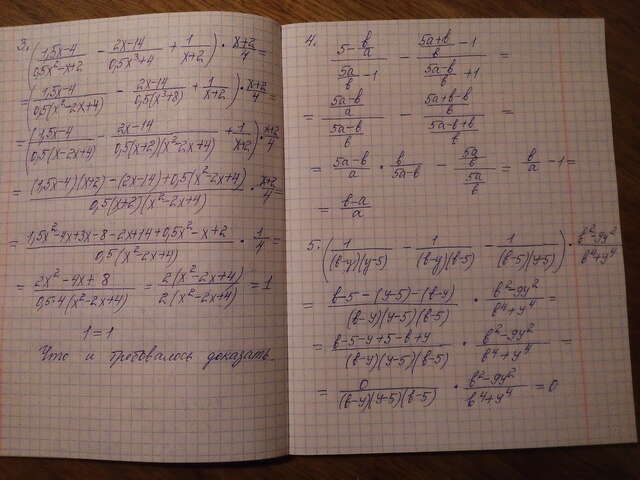 3. ( (1,5x-4)/(0,5x²-x+2) - (2x-14)/(0,5x³+4) + 1/(x+2) ) · (x+2)/4 =
= ( (1,5x-4)/(0,5(x²-2x+4)) - (2x-14)/(0,5(x³+8)) + 1/(x+2) ) · (x+2)/4 =
= ( (1,5x-4)/(0,5(x-2x+4)) - (2x-14)/(0,5(x+2)(x²-2x+4)) + 1/(x+2) ) · (x+2)/4
= ((1,5x-4)(x+2) - (2x-14) + 0,5(x²-2x+4))/(0,5(x+2)(x²-2x+4)) · (x+2)/4 =
= (1,5x²-4x+3x-8-2x+14+0,5x²-x+2)/(0,5(x²-2x+4)) · 1/4 =
= (2x²-4x+8)/(0,5·4(x²-2x+4)) = (2(x²-2x+4))/(2(x²-2x+4)) = 1
1=1
Что и требовалось доказать.
4. (5-b/a)/(5a/b-1) - ((5a+b)/b-1)/((5a-b)/b+1) =
= ((5a-b)/a)/((5a-b)/b) - ((5a+b-b)/b)/((5a-b+b)/b) =
= (5a-b)/a · b/(5a-b) - (5a/b)/(5a/b) = b/a - 1 =
= (b-a)/a
5. ( 1/((b-y)(y-5)) - 1/((b-y)(b-5)) - 1/((b-5)(y-5)) ) · (b²-9y²)/(b⁴+y⁴)
= (b-5-(y-5)-(b-y))/((b-y)(y-5)(b-5)) · (b²-9y²)/(b⁴+y⁴) =
= (b-5-y+5-b+y)/((b-y)(y-5)(b-5)) · (b²-9y²)/(b⁴+y⁴) =
= 0/((b-y)(y-5)(b-5)) · (b²-9y²)/(b⁴+y⁴) = 0